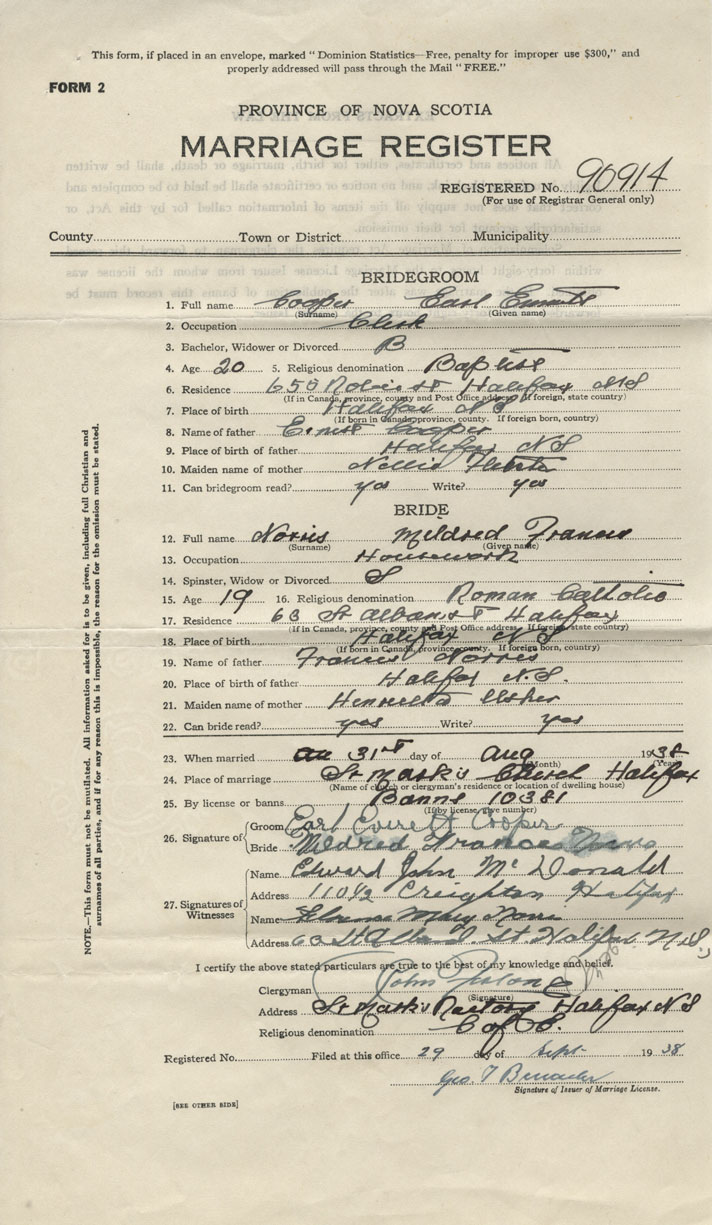 This form, if placed in an envelope, marked "Dominion Statistics—Free, penalty for improper use $300," and
properly addressed will pass through the Mail "FREE."
FORM 2
PROVINCE OF NOVA SCOTIA
MARRIAGE REGISTER
REGISTERED No. 90914
(For use of Registrar General only)
County Town or District Municipality
BRIDEGROOM
1. Full name Cooper Earl
(Surname) (Given name)
2. Occupation Clerk
3. Bachelor, Widower or Divorced B
4. Age 20 5. Religious denomination Baptist
6. Residence 650 Halifax NS
(If in Canada, province, county and Post Office address. If foreign, state country)
7. Place of birth Halifax NS
(If born in Canada, province, county. If foreign born, country)
8. Name of father Cooper
9. Place of birth of father Halifax NS
10. Maiden name of mother Nellie
11. Can bridegroom read? yes Write? yes
BRIDE
12. Full name Norris Mildred Francis
(Surname) (Given name)
13. Occupation Housework
14. Spinster, Widow or Divorced S
15. Age 19 16. Religious denomination Roman Catholic
17. Residence 63 St Albans St Halifax
(If in Canada, province, county and Post Office address. If foreign, state country)
18. Place of birth Halifax NS
(If born in Canada, province, county. If foreign born, country)
19. Name of father Francis Norris
20. Place of birth of father Halifax N.S.
21. Maiden name of mother Henrietta Usher
22. Can bride read? yes Write? yes
23. When married 31st day of Aug 1938
(Month) (Year)
24. Place of marriage St Mark's Church Halifax
(Name of church or clergyman's residence or location of dwelling house)
25. By license or banns Banns 10381
(If by license, give number)
26. Signature of Groom Earl Everett Cooper
Bride Mildred Frances Norris
27. Signatures of Witnesses Name Edward John McDonald
Address 110½ Creighton Halifax
Name Mary Norris
Address 63 St Alban St. Halifax N.S.
I certify the above stated particulars are true to the best of my knowledge and belief.
Clergyman John Furlong
(Signature)
Address St Mark's Rectory Halifax NS
Religious denomination C of E.
Registered No. Filed at this office 29 day of Sept 1938
Geo. T
Signature of Issuer of Marriage License.
[SEE OTHER SIDE]
NOTE.—This form must not be mutilated. All information asked for is to be given, including full Christian and
surnames of all parties, and if for any reason this is impossible, the reason for the omission must be stated.